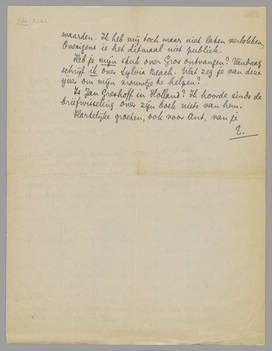 waarden. Ik heb mij toch maar niet laten verlokken.
Overigens is het ditmaal niet publiek.
Heb je mijn stuk over Gros ontvangen? Vandaag
schrijf ik over Sylvia Beach. Wat zeg je van deze
ijver om mijn vrouwtje te helpen?
Is Jan Greshoff in Holland? Ik hoorde sinds de
briefwisseling over zijn boek niets van hem.
Hartelijke groeten, ook voor Ant, van je
E.